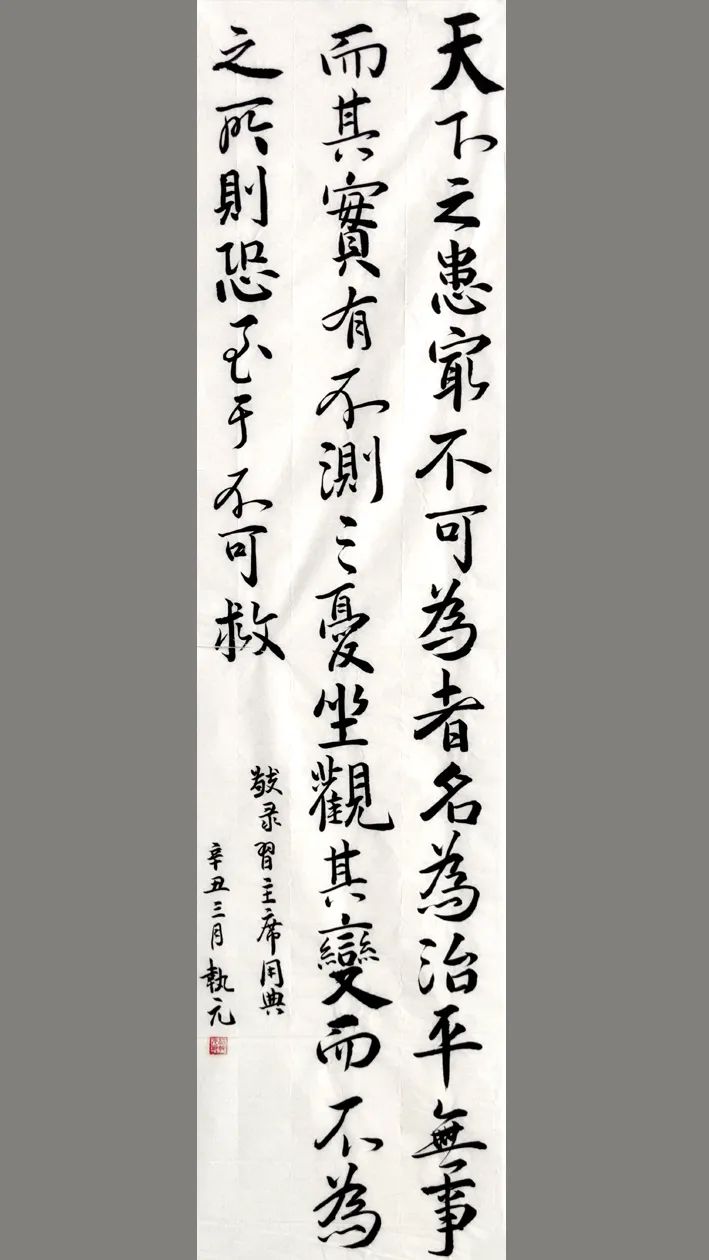 天下之患最不可為者名為治平無事
而其實有不測之憂坐觀其變而不為
之所則恐至于不可救
敬录習主席用典
辛丑三月執元